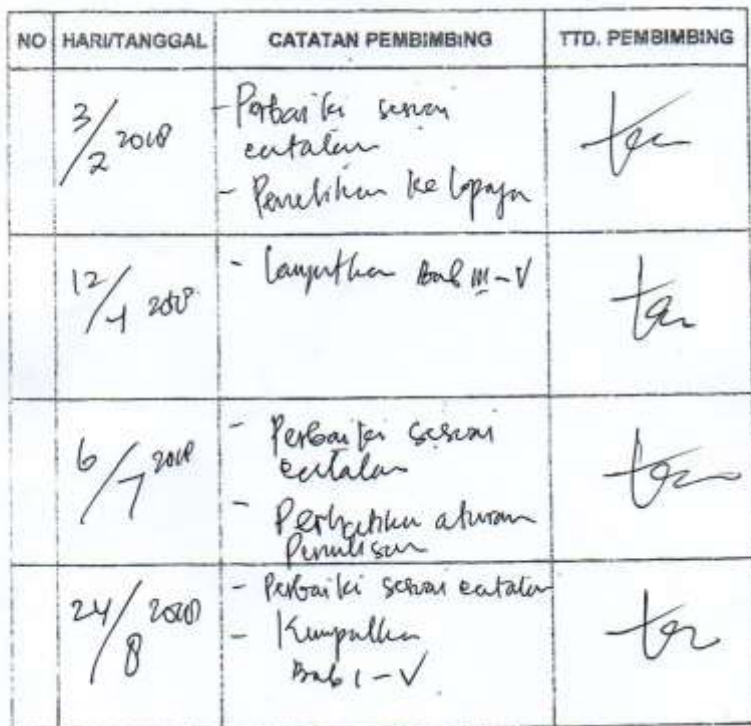 NO HARI/TANGGAL CATATAN PEMBIMBING TTD. PEMBIMBING
3/2 2018
- Perbaiki sesuai
catatan
- Penelitian ke lapangan
12/4 2018
- Lanjutkan Bab III - V
6/7 2018
- Perbaiki sesuai
catatan
- Perhatikan aturan
Penulisan
24/8 2018
- Perbaiki sesuai catatan
- Kumpulkan
Bab I - V